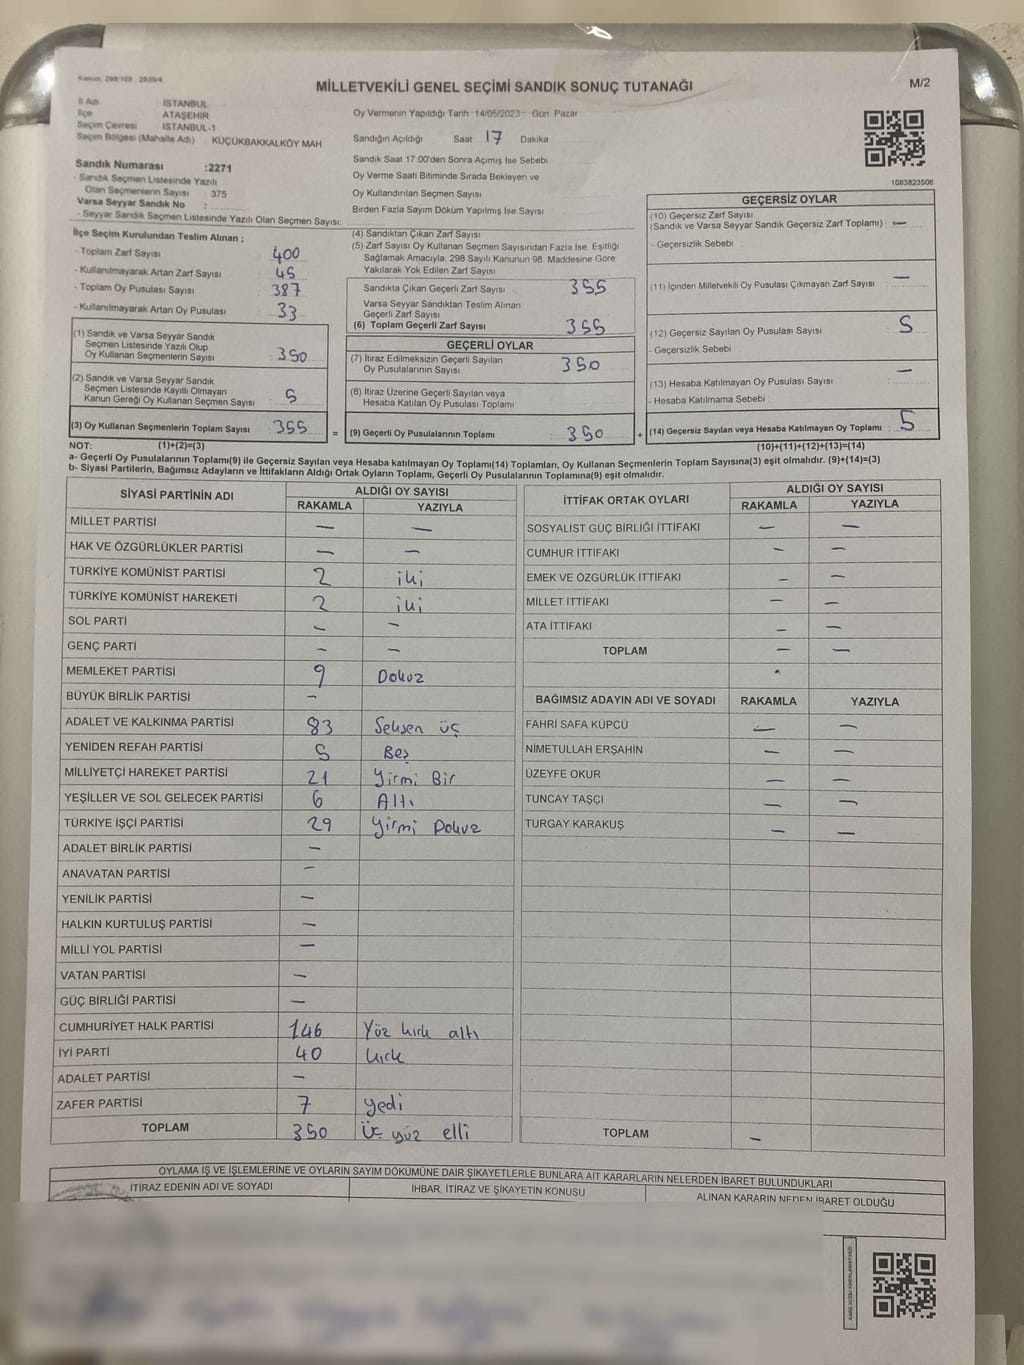 Kanun: 298/109 , 2839/4
MİLLETVEKİLİ GENEL SEÇİMİ SANDIK SONUÇ TUTANAĞI
M/2
İl Adı : İSTANBUL
İlçe : ATAŞEHİR
Seçim Çevresi : İSTANBUL-1
Seçim Bölgesi (Mahalle Adı) : KÜÇÜKBAKKALKÖY MAH
Sandık Numarası :2271
- Sandık Seçmen Listesinde Yazılı
Olan Seçmenlerin Sayısı : 375
Varsa Seyyar Sandık No :
- Seyyar Sandık Seçmen Listesinde Yazılı Olan Seçmen Sayısı:
İlçe Seçim Kurulundan Teslim Alınan ;
- Toplam Zarf Sayısı : 400
- Kullanılmayarak Artan Zarf Sayısı : 45
- Toplam Oy Pusulası Sayısı : 387
- Kullanılmayarak Artan Oy Pusulası : 33
(1) Sandık ve Varsa Seyyar Sandık
Seçmen Listesinde Yazılı Olup
Oy Kullanan Seçmenlerin Sayısı : 350
(2) Sandık ve Varsa Seyyar Sandık
Seçmen Listesinde Kayıtlı Olmayan
Kanun Gereği Oy Kullanan Seçmen Sayısı : 5
(3) Oy Kullanan Seçmenlerin Toplam Sayısı : 355
Oy Vermenin Yapıldığı Tarih :14/05/2023 - Gün Pazar
Sandığın Açıldığı Saat 17 Dakika
Sandık Saat 17:00'den Sonra Açımış İse Sebebi
Oy Verme Saati Bitiminde Sırada Bekleyen ve
Oy Kullandırılan Seçmen Sayısı
Birden Fazla Sayım Döküm Yapılmış İse Sayısı
(4) Sandıktan Çıkan Zarf Sayısı
(5) Zarf Sayısı Oy Kullanan Seçmen Sayısından Fazla İse, Eşitliği
Sağlamak Amacıyla; 298 Sayılı Kanunun 98. Maddesine Göre
Yakılarak Yok Edilen Zarf Sayısı
Sandıkta Çıkan Geçerli Zarf Sayısı : 355
Varsa Seyyar Sandıktan Teslim Alınan
Geçerli Zarf Sayısı
(6) Toplam Geçerli Zarf Sayısı : 355
GEÇERLİ OYLAR
(7) İtiraz Edilmeksizin Geçerli Sayılan
Oy Pusulalarının Sayısı : 350
(8) İtiraz Üzerine Geçerli Sayılan veya
Hesaba Katılan Oy Pusulası Toplamı
= (9) Geçerli Oy Pusulalarının Toplamı : 350 +
1083823506
GEÇERSİZ OYLAR
(10) Geçersiz Zarf Sayısı
(Sandık ve Varsa Seyyar Sandık Geçersiz Zarf Toplamı) : —
- Geçersizlik Sebebi
(11) İçinden Milletvekili Oy Pusulası Çıkmayan Zarf Sayısı : —
(12) Geçersiz Sayılan Oy Pusulası Sayısı : 5
- Geçersizlik Sebebi
(13) Hesaba Katılmayan Oy Pusulası Sayısı : —
- Hesaba Katılmama Sebebi
(14) Geçersiz Sayılan veya Hesaba Katılmayan Oy Toplamı : 5
NOT: (1)+(2)=(3) (10)+(11)+(12)+(13)=(14)
a- Geçerli Oy Pusulalarının Toplamı(9) ile Geçersiz Sayılan veya Hesaba katılmayan Oy Toplamı(14) Toplamları, Oy Kullanan Seçmenlerin Toplam Sayısına(3) eşit olmalıdır. (9)+(14)=(3)
b- Siyasi Partilerin, Bağımsız Adayların ve İttifakların Aldığı Ortak Oyların Toplamı, Geçerli Oy Pusulalarının Toplamına(9) eşit olmalıdır.
SİYASİ PARTİNİN ADI ALDIĞI OY SAYISI
RAKAMLA YAZIYLA
MİLLET PARTİSİ — —
HAK VE ÖZGÜRLÜKLER PARTİSİ — —
TÜRKİYE KOMÜNİST PARTİSİ 2 iki
TÜRKİYE KOMÜNİST HAREKETİ 2 iki
SOL PARTİ — —
GENÇ PARTİ — —
MEMLEKET PARTİSİ 9 Dokuz
BÜYÜK BİRLİK PARTİSİ —
ADALET VE KALKINMA PARTİSİ 83 Seksen üç
YENİDEN REFAH PARTİSİ 5 Beş
MİLLİYETÇİ HAREKET PARTİSİ 21 Yirmi Bir
YEŞİLLER VE SOL GELECEK PARTİSİ 6 Altı
TÜRKİYE İŞÇİ PARTİSİ 29 Yirmi Dokuz
ADALET BİRLİK PARTİSİ —
ANAVATAN PARTİSİ —
YENİLİK PARTİSİ —
HALKIN KURTULUŞ PARTİSİ —
MİLLİ YOL PARTİSİ —
VATAN PARTİSİ —
GÜÇ BİRLİĞİ PARTİSİ —
CUMHURİYET HALK PARTİSİ 146 Yüz kırk altı
İYİ PARTİ 40 kırk
ADALET PARTİSİ —
ZAFER PARTİSİ 7 yedi
TOPLAM 350 Üç yüz elli
İTTİFAK ORTAK OYLARI ALDIĞI OY SAYISI
RAKAMLA YAZIYLA
SOSYALİST GÜÇ BİRLİĞİ İTTİFAKI — —
CUMHUR İTTİFAKI — —
EMEK VE ÖZGÜRLÜK İTTİFAKI — —
MİLLET İTTİFAKI — —
ATA İTTİFAKI — —
TOPLAM — —
BAĞIMSIZ ADAYIN ADI VE SOYADI RAKAMLA YAZIYLA
FAHRİ SAFA KÜPCÜ — —
NİMETULLAH ERŞAHİN — —
ÜZEYFE OKUR — —
TUNCAY TAŞÇI — —
TURGAY KARAKUŞ — —
TOPLAM —
OYLAMA İŞ VE İŞLEMLERİNE VE OYLARIN SAYIM DÖKÜMÜNE DAİR ŞİKAYETLERLE BUNLARA AİT KARARLARIN NELERDEN İBARET BULUNDUKLARI
İTİRAZ EDENİN ADI VE SOYADI İHBAR, İTİRAZ VE ŞİKAYETİN KONUSU ALINAN KARARIN NEDEN İBARET OLDUĞU